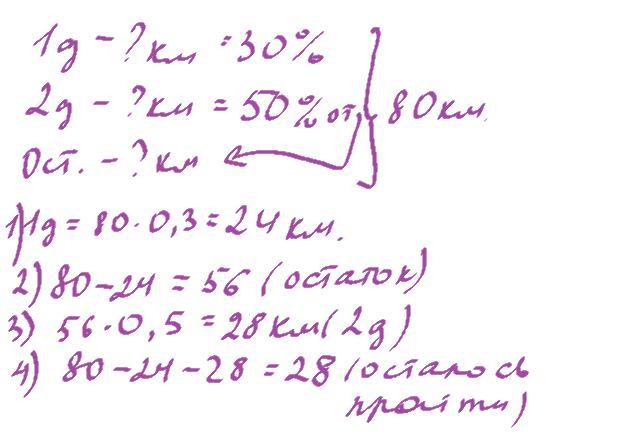 1д – ? км = 30%
2д – ? км = 50% от 80 км.
Ост. – ? км
1) 1д = 80 · 0,3 = 24 км.
2) 80 – 24 = 56 (остаток)
3) 56 · 0,5 = 28 км (2д)
4) 80 – 24 – 28 = 28 (осталось
пройти)